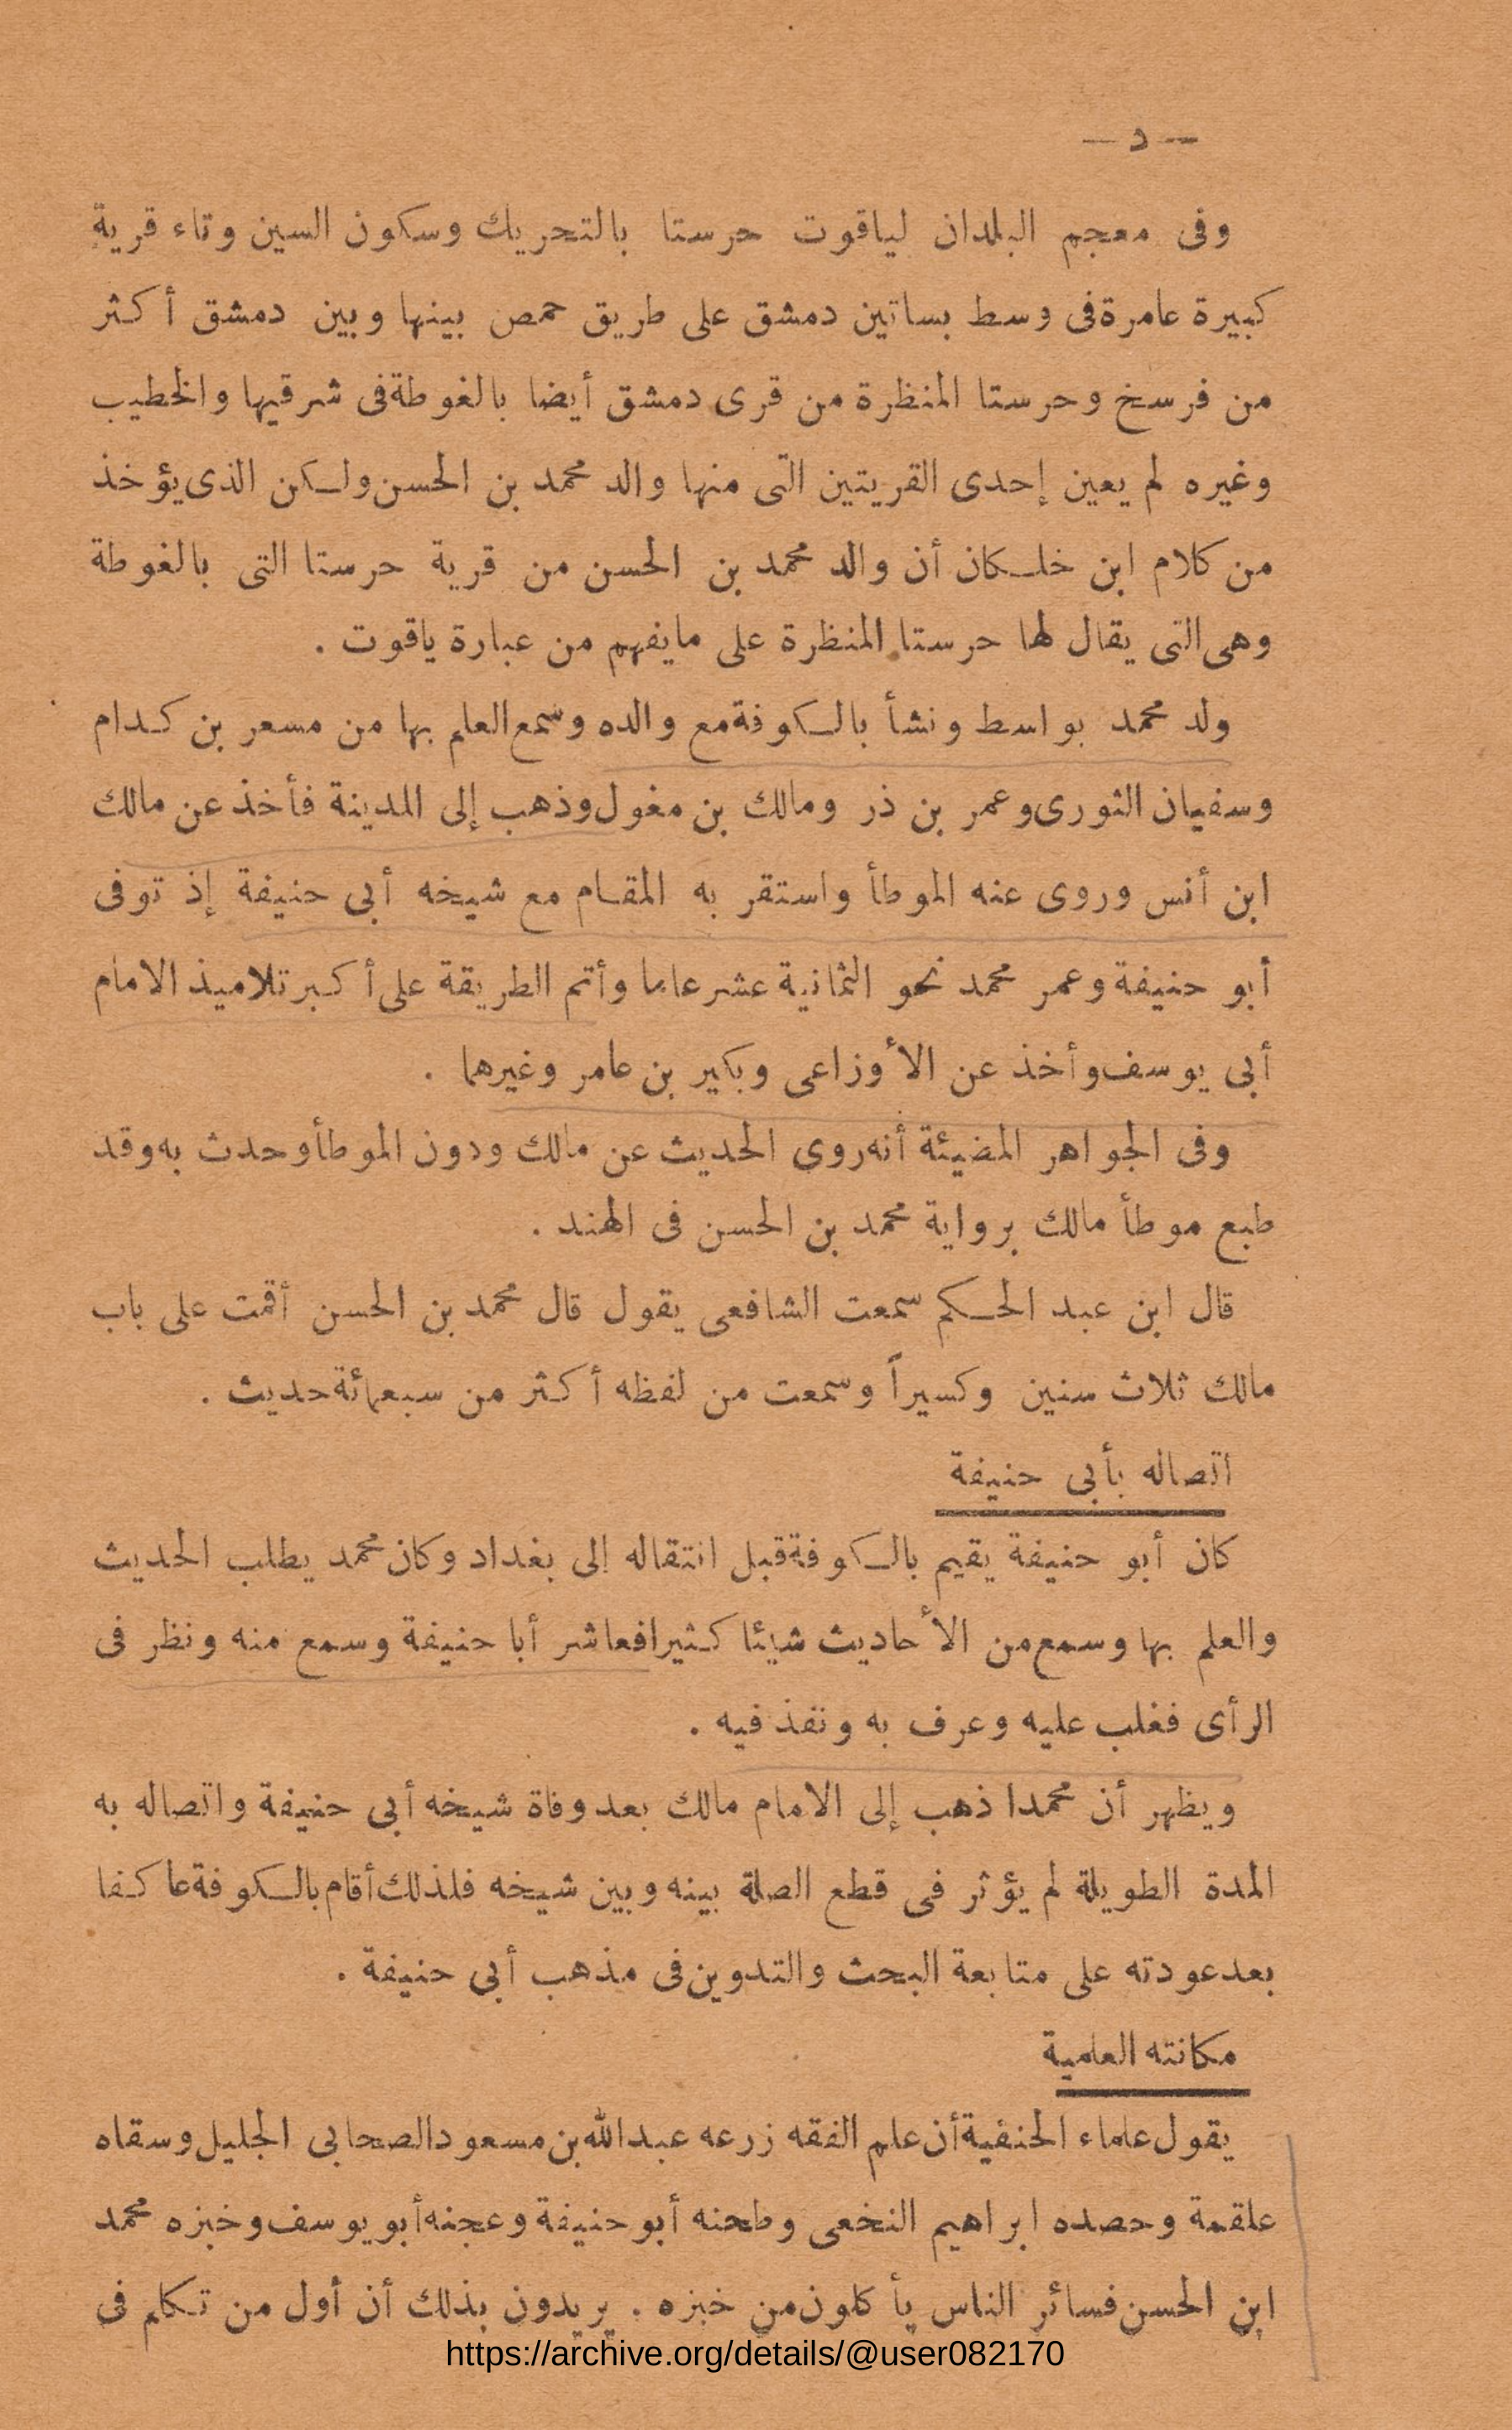 — د —
وفى معجم البلدان لياقوت حرستا بالتحريك وسكون السين وتاء قرية
كبيرة عامرة فى وسط بساتين دمشق على طريق حمص بينها وبين دمشق أكثر
من فرسخ وحرستا المنظرة من قرى دمشق أيضا بالغوطة فى شرقيها والخطيب
وغيره لم يعين إحدى القريتين التى منها والد محمد بن الحسن ولكن الذى يؤخذ
من كلام ابن خلكان أن والد محمد بن الحسن من قرية حرستا التى بالغوطة
وهى التى يقال لها حرستا المنظرة على مايفهم من عبارة ياقوت .
ولد محمد بواسط ونشأ بالكوفة مع والده وسمع العلم بها من مسعر بن كدام
وسفيان الثورى وعمر بن ذر ومالك بن مغول وذهب إلى المدينة فأخذ عن مالك
ابن أنس وروى عنه الموطأ واستقر به المقام مع شيخه أبى حنيفة إذ توفى
أبو حنيفة وعمر محمد نحو الثمانية عشر عاما وأتم الطريقة على أكبر تلاميذ الامام
أبى يوسف وأخذ عن الأوزاعى وبكير بن عامر وغيرهما .
وفى الجواهر المضيئة أنه روى الحديث عن مالك ودون الموطأ وحدث به وقد
طبع موطأ مالك برواية محمد بن الحسن فى الهند .
قال ابن عبد الحكم سمعت الشافعى يقول قال محمد بن الحسن أقمت على باب
مالك ثلاث سنين وكسيراً وسمعت من لفظه أكثر من سبعمائة حديث .
اتصاله بأبى حنيفة
كان أبو حنيفة يقيم بالكوفة قبل انتقاله إلى بغداد وكان محمد يطلب الحديث
والعلم بها وسمع من الأحاديث شيئا كثيرا فعاشر أبا حنيفة وسمع منه ونظر فى
الرأى فغلب عليه وعرف به ونفذ فيه .
ويظهر أن محمدا ذهب إلى الامام مالك بعد وفاة شيخه أبى حنيفة واتصاله به
المدة الطويلة لم يؤثر فى قطع الصلة بينه وبين شيخه فلذلك أقام بالكوفة عاكفا
بعد عودته على متابعة البحث والتدوين فى مذهب أبى حنيفة .
مكانته العلمية
يقول علماء الحنفية أن علم الفقه زرعه عبد الله بن مسعود الصحابى الجليل وسقاه
علقمة وحصده ابراهيم النخعى وطحنه أبو حنيفة وعجنه أبو يوسف وخبزه محمد
ابن الحسن فسائر الناس يأكلون من خبزه . يريدون بذلك أن أول من تكلم فى
https://archive.org/details/@user082170